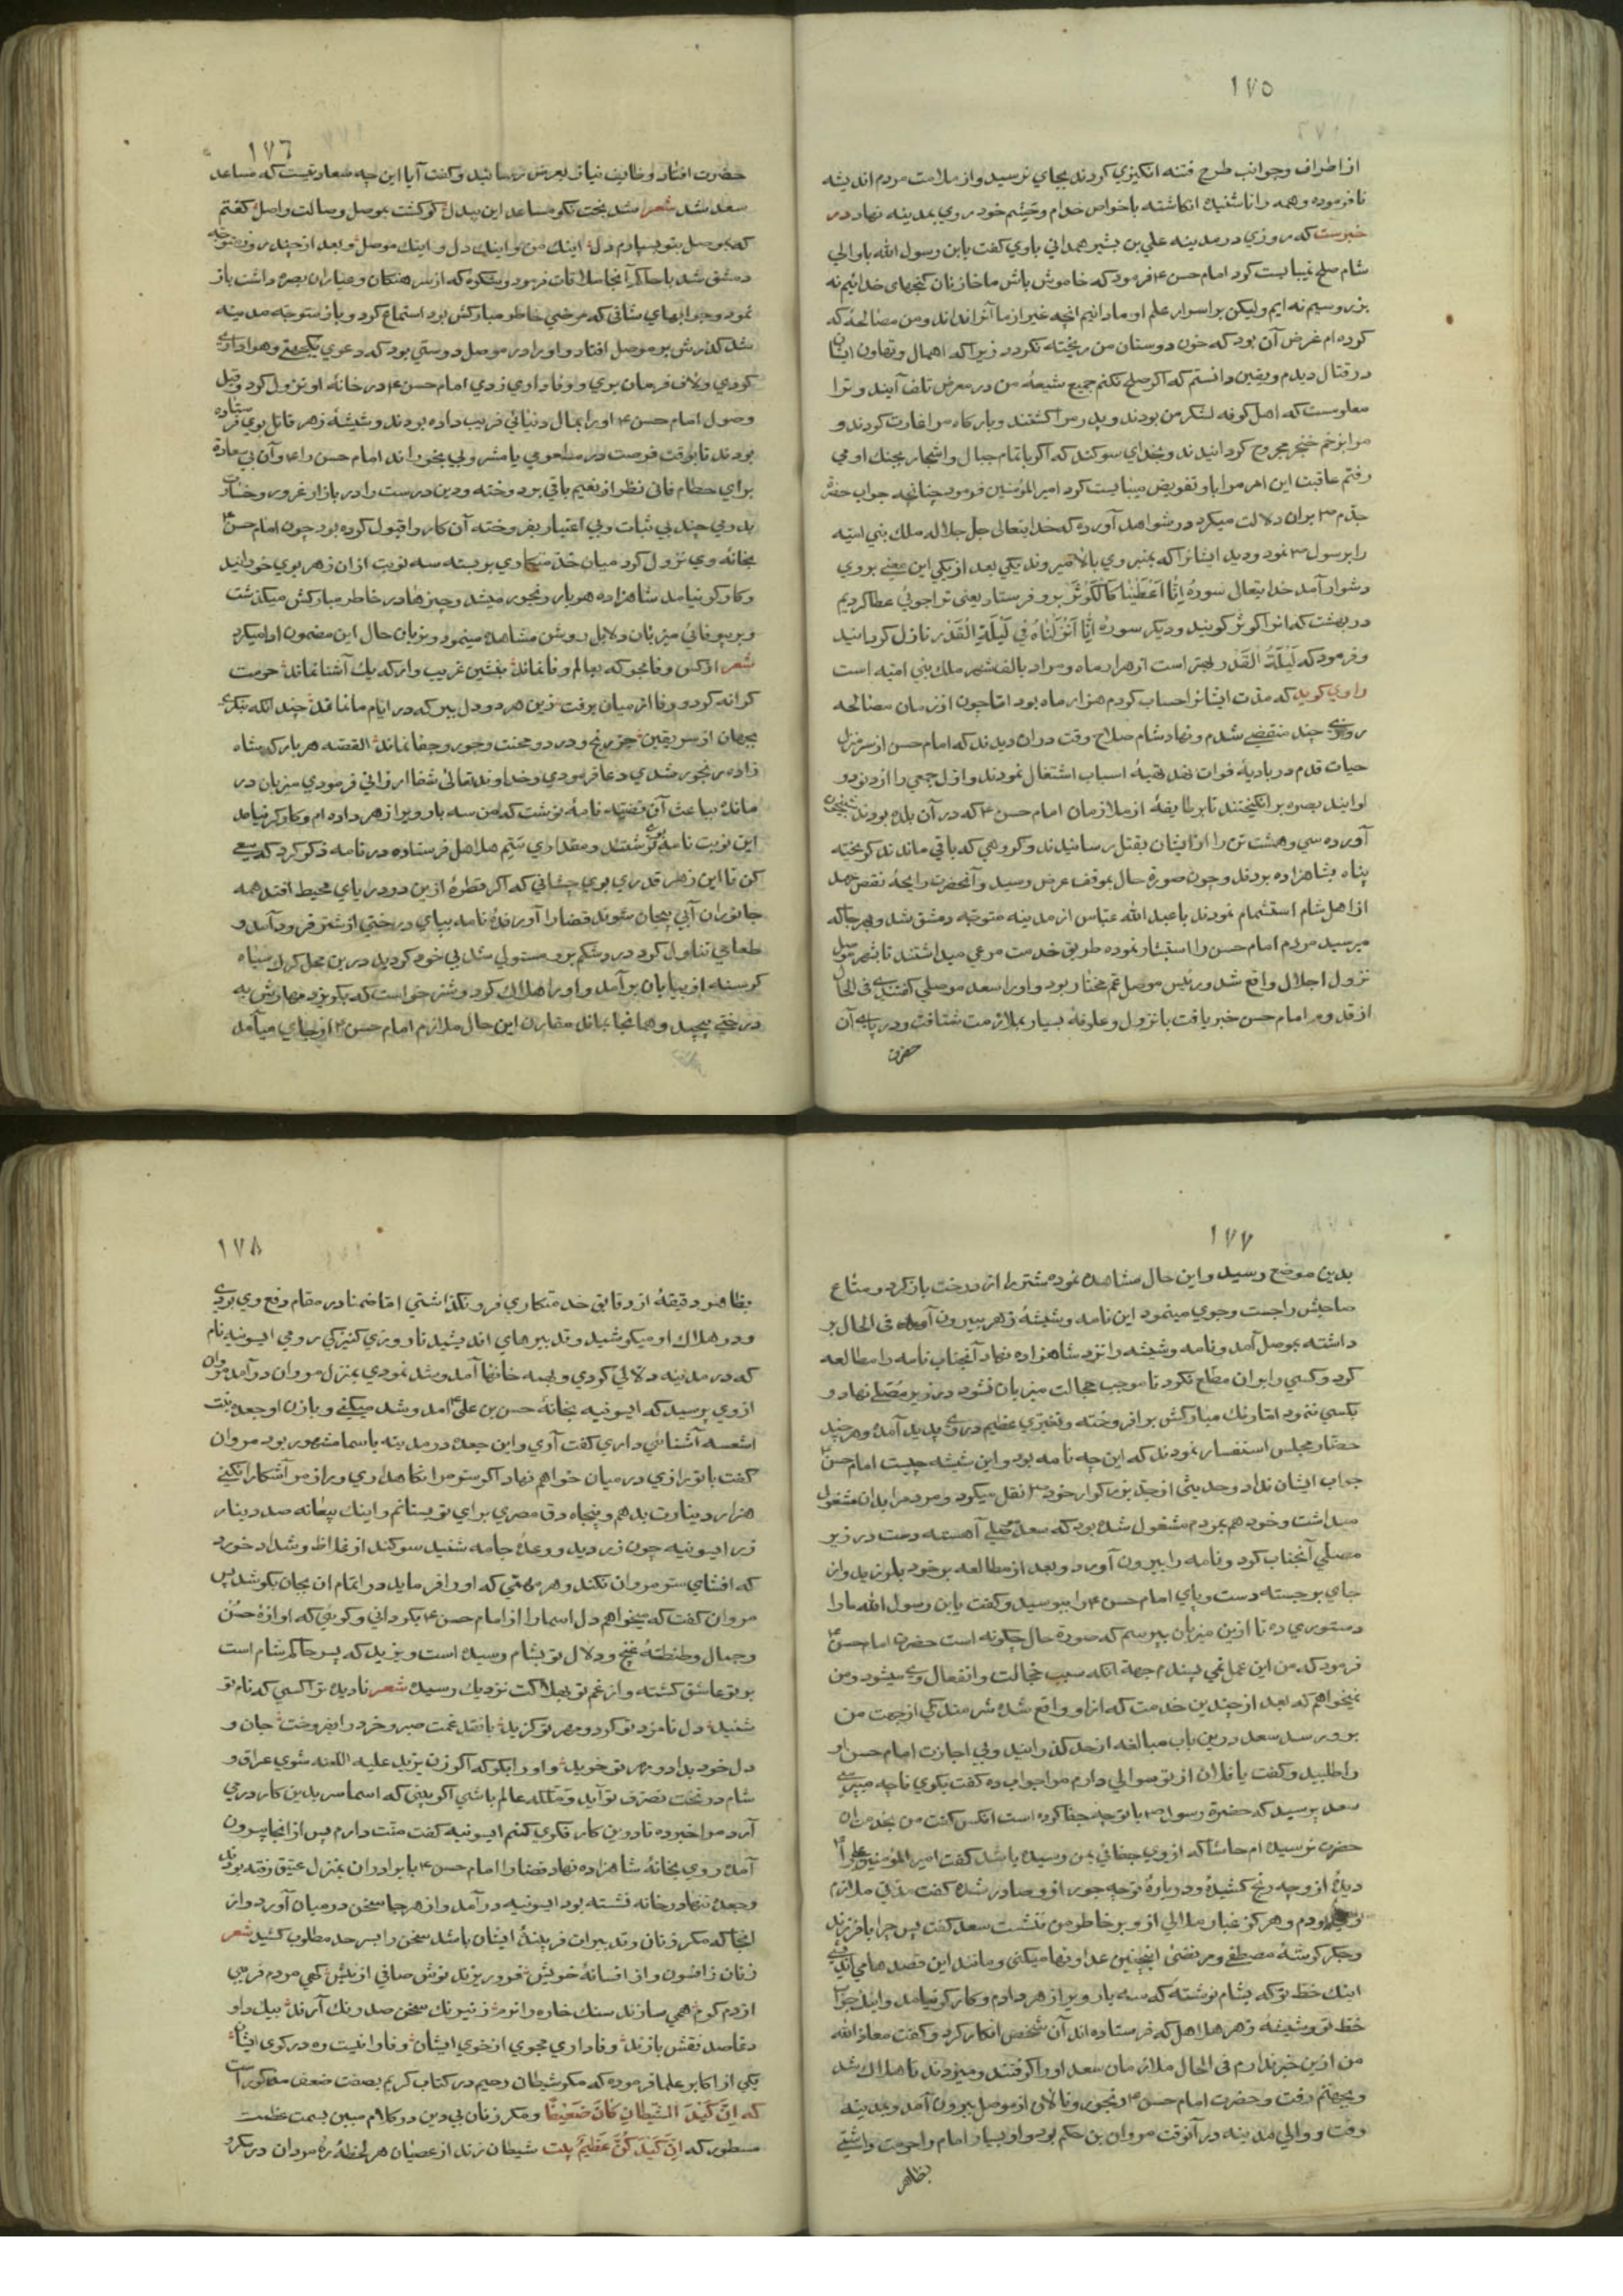 ١٧٥
از اطراف و جوانب طرح فتنه انگیزی کردند بجای نرسید و از ملامت مردم اندیشه
نافرموده و همه را ناشنیده انکاشته باخواص خدام و حشم خود روی بمدینه نهاد در
خبرست که روزی در مدینه علی بن بشیر همدانی باوی کفت یابن رسول الله با والی
شام صلح نمیبایست کرد امام حسن ٤ فرمود که خاموش باش ما خازنان کنجهای خدائیم نه
بزر و سیم نه ایم ولیکن بر اسرار علم او ما دانیم انچه غیر از ما آنرا نداند و من مصالحهٔ که
کرده ام غرض آن بود که خون دوستان من ریخته نکردد زیرا که اهمال و تهاون ایشان
در قتال دیدم و یقین دانستم که اکر صلح نکنم جمیع شیعهٔ من در معرض تلف آیند و ترا
معلومست که اهل کوفه لشکر من بودند و پدر مرا کشتند و بارکاه مرا غارت کردند و
مرا بزخم خنجر مجروح کردانیدند و بخدای سوکند که اکر با تمام جبال و اشجار بجنك او می
رفتم عاقبت این امر مرا باو تفویض میبایست کرد امیر المؤمنین فرمود چنانچه جواب حضرة
جدّم ص بران دلالت میکرد در شواهد آورده که خدایتعالی جلّ جلاله ملك بنی امیّه
را برسول ص نمود و دید ایشانرا که بمنبر وی بالا میروند یکی بعد از یکی این معنی بر وی
دشوار آمد خدایتعالی سورهٔ اِنّا اَعْطَیْنَاكَ الْکَوْثَرَ برو فرستاد یعنی ترا جوئی عطا کردیم
در بهشت که انرا کوثر کویند و دیکر سورهٔ اِنّا اَنْزَلْنَاهُ فِی لَیْلَةِ الْقَدْر نازل کردانید
و فرمود که لَیْلَةُ الْقَدْر بهتر است از هزار ماه و مراد بالف شهر ملك بنی امیّه است
راوی کوید که مدّت ایشانرا حساب کردم هزار ماه بود امّا چون از زمان مصالحه
روزی چند منقضی شد مردم نهاد شام صلاح وقت دران دیدند که امام حسن از سر منزل
حیات قدم در بادیهٔ فوات نهد تهیهٔ اسباب اشتغال نمودند و اوّل جمعی را از دزدو
اوباند بصره برانکیختند تا بر طایفهٔ از ملازمان امام حسن ٤ که در آن بلده بودند شبیخون
آورده سی و هشت تن را از ایشان بقتل رسانیدند و کروهی که باقی ماندند کریخته
پناه بشاهزاده بودند و چون صورة حال بموقف عرض رسید و آنحضرت رایحهٔ نقض عهد
از اهل شام استشمام نمودند با عبد الله عباس از مدینه متوجّه دمشق شد و بهر جا که
میرسید مردم امام حسن را استبشار نموده طریق خدمت مرعی میداشتند تا بشهر موصل
نزول اجلال واقع شد و رئیس موصل عم مختار بود و اورا سعد موصلی کفتندی فی الحال
از قدوم امام حسن خبر یافت با نزول و علوفهٔ بسیار بملازمت شتافت و در پای آن
حضرت
١٧٦
حضرت افتاد وظایف نیاز بعرض رسانید و کفت آیا این چه سعادتیست که مساعد
سعد شد شعر شد بخت نکو مساعد این بیدل کو کشت بموصل وصالت واصل کفتم
که بموصل بتو بسپارم دل اینك من و اینك دل و اینك موصل و بعد از چند روز متوجّه
دمشق شد با حاکم آنجا ملاقات فرمود و شکوه که از سرهنکان و عیّاران بصره داشت باز
نمود و جوابهای شافی که مرضی خاطر مبارکش بود استماع کرد و باز متوجّه مدینه
شد کذرش بر موصل افتاد و اورا در موصل دوستی بود که دعوی یکجهتی و هواداری
کردی و لاف فرمان بری و وفاداری زدی امام حسن ٤ در خانهٔ او نزول کرد و قبل
وصول امام حسن ٤ اورا بمال دنیائی فریب داده بودند و شیشهٔ زهر قاتل بوی فرستاده
بودند تا بوقت فرصت در مطعومی یا مشروبی بخوراند امام حسن را ٤ و آن بی سعادة
برای حطام فانی نظر از نعیم باقی بر دوخته و دین درست را در بازار غرور و خسارت
بدرمی چند بی ثبات و بی اعتبار بفروخته آن کار را قبول کرده بود چون امام حسن ٤
بخانهٔ وی نزول کرد میان خدمتکاری بر بسته سه نوبت ازان زهر بوی خورانید
و کارکر نیامد شاهزاده هر بار رنجور میشد و چیزها در خاطر مبارکش میکذشت
و بر بیوفائی میزبان دلایل روشن مشاهده مینمود و بزبان حال این مضمون ادا میکرد
شعر از کس وفا مجو که بعالم وفا نماند بنشین غریب وار که یك آشنا نماند حرمت
کرانه کرد و وفا از میان برفت زین هر دو دل ببر که در ایام ما نماند چندانکه بنکری
بجهان از سر یقین جز رنج و درد و محنت و جور و جفا نماند القصّه هر بار که شاه
زاده رنجور شدی دعا فرمودی و خداوند تعالی شفا ارزانی فرمودی میزبان در
مانده بباعث آن فضیّه نامهٔ نوشت که من سه بار ویرا زهر داده ام و کارکر نیامد
این نوبت نامهٔ بوی نوشتند و مقداری سم هلاهل فرستاده در نامه ذکر کرد که سعی
کن تا این زهر قدری بوی چشانی که اکر قطرهٔ ازین در دریای محیط افتد همه
جانوران آبی بیجان شوند قضارا آورندهٔ نامه بپای درختی از شتر فرود آمد و
طعامی تناول کرد درد شکم برو مستولی شد بی خود کردید درین محل کرك سیاه
کرسنه از بیابان بر آمد و اورا هلاك کرد و شتر خواست که بکریزد مهارش به
درختی پیچید و همانجا بماند مقارن این حال ملازم امام حسن ٤ از جای میآمد
١٧٧
بدین موضع رسید و این حال مشاهده نموده شتر را از درخت باز کرد و متاع
صاحبش را جست و جوی مینمود این نامه و شیشهٔ زهر بیرون آمد فی الحال بر
داشته بموصل آمد و نامه و شیشه را نزد شاهزاده نهاد آنجناب نامه را مطالعه
کرد و کسی را بران مطّلع نکرد تا موجب خجالت میزبان نشود در زیر مُصَلّی نهاد و
بکسی ننمود امّا رنك مبارکش بر افروخته و تغیّری عظیم در وی پدید آمد و هر چند
حضّار مجلس استفسار نمودند که این چه نامه بود و این شیشه چیست امام حسن ٤
جواب ایشان نداد و حدیثی از جدّ بزرکوار خود ص نقل میکرد و مردم را بدان مشغول
میداشت و خود هم بمردم مشغول شده بود که سعد موصلی آهسته دست در زیر
مصلّی آنجناب کرد و نامه را بیرون آورد و بعد از مطالعه بر خود بلرزید و از
جای بر جسته دست و پای امام حسن ٤ را ببوسید و کفت یابن رسول الله مارا
دستوری ده تا ازین میزبان بپرسم که صورة حال چکونه است حضرت امام حسن ٤
فرمود که من این عمل نمی پسندم جهة انکه سبب خجالت و انفعال وی میشود و من
نمیخواهم که بعد از چندین خدمت که از او واقع شده شرمندکی از جهت من
برو رسد سعد درین باب مبالغه از حد کذرانید و بی اجازت امام حسن او
را طلبید و کفت یا فلان از تو سوالی دارم مرا جواب ده کفت بکوی تا چه میپرسی
سعد پرسید که حضرة رسول ص با تو چه جفا کرده است انکس کفت من بخدمت ان
حضرت نرسیده ام حاشا که از وی جفائی بمن رسیده باشد کفت امیر المؤمنین علی را ٤
دیدهٔ از وچه رنج کشیدهٔ و در بارهٔ تو چه جور ازو صادر شده کفت مدّتی ملازم
وی بودم و هرکز غبار ملالی از وی بر خاطر من ننشست سعد کفت پس چرا با فرزند
و جکر کوشهٔ مصطفی و مرتضی اینچنین عداوتها میکنی و مانند این قصدها می اندیشی
اینك خط تو که بشام نوشتهٔ که سه بار ویرا زهر دادم و کارکر نیامد و اینك جواب
خط تو و شیشهٔ زهر هلاهل که فرستاده اند آن شخص انکار کرد و کفت معاذ الله
من ازین خبر ندارم فی الحال ملازمان سعد اورا کرفتند و میزدند تا هلاك شد
و بجهنّم رفت و حضرت امام حسن ٤ رنجور و نالان از موصل بیرون آمد و بمدینه
رفت و والی مدینه در آنوقت مروان بن حکم بود و او بسیار امام را حرمت داشتی
بظاهر
١٧٨
بظاهر دقیقهٔ از دقایق خدمتکاری فرو نکذاشتی امّا ضمنا در مقام دفع وی بودی
و در هلاك او میکوشید و تدبیرهای اندیشید تا روزی کنیزکی رومی ایسونیه نام
که در مدینه دلالی کردی و بهمه خانها آمد و شد نمودی بمنزل مروان در آمد مروان
از وی پرسید که ایسونیه بخانهٔ حسن بن علی ٤ امد و شد میکنی و با زن او جعده بنت
اشعث آشنائی داری کفت آری و این جعده در مدینه باسما مشهور بود مروان
کفت با تو رازی در میان خواهم نهاد اکر ستر مرا نکاهداری و راز مرا آشکارا نکنی
هزار دینارت بدهم و پنجاه دق مصری برای تو بستانم و اینك بیعانه صد دینار
زر ایسونیه چون زر دید و وعدهٔ جامه شنید سوکند از غلاظ و شداد خورد
که افشای ستر مروان نکند و هر مهمّی که اورا فرماید در اتمام ان بجان بکوشد پس
مروان کفت که میخواهم دل اسما را از امام حسن ٤ بکردانی و کوئی که اوازهٔ حُسن
و جمال و طنطنهٔ غنج و دلال تو بشام رسیده است و یزید که پسر حاکم شام است
بر تو عاشق کشته و از غم تو بهلاکت نزدیك رسیده شعر نادیده ترا کسی که نام تو
شنید دل نامزد تو کرد و مهر تو کزید با نقد غمت صبر و خرد را بفروخت جان و
دل خود بداد و مهر تو خرید و اورا بکو که اکر زن یزید علیه اللعنه شوی عراق و
شام در تحت تصرّف تو آید و ملکهٔ عالم باشی اکر بینی که اسما سر بدین کار در می
آرد مرا خبر ده تا درین کار فکری کنم ایسونیه کفت منّت دارم پس از انجا بیرون
آمده روی بخانهٔ شاهزاده نهاد قضارا امام حسن ٤ با برادران بمنزل عتیق رفته بودند
و جعده تنها در خانه نشسته بود ایسونیه در آمد و از هر جا سخن در میان آورد و از
انجا که مکر زنان و تدبیرات فریبندهٔ ایشان باشد سخن را بسر حد مطلوب کشید شعر
زنان ز افسون و از افسانهٔ خویش فرو ریزند نوش صافی از نیش کهی مردم فریبی
از دم کرم همی سازند سنك خاره را نرم ز نیرنك سخن صد رنك آرند بیك داو
دغا صد نقش بازند وفاداری مجوی از خوی ایشان وفارا نیست ره در کوی ایشان
یکی از اکابر علما فرموده که مکر شیطان رجیم در کتاب کریم بصفت ضعف مذکور است
که اِنَّ کَیْدَ الشَّیْطَانِ کَانَ ضَعِیْفًا و مکر زنان بی دین در کلام مبین بسمت عظمت
مسطور که اِنَّ کَیْدَکُنَّ عَظِیْمٌ بیت شیطان زند از عصیان هر لحظه ره مردان در مکر و